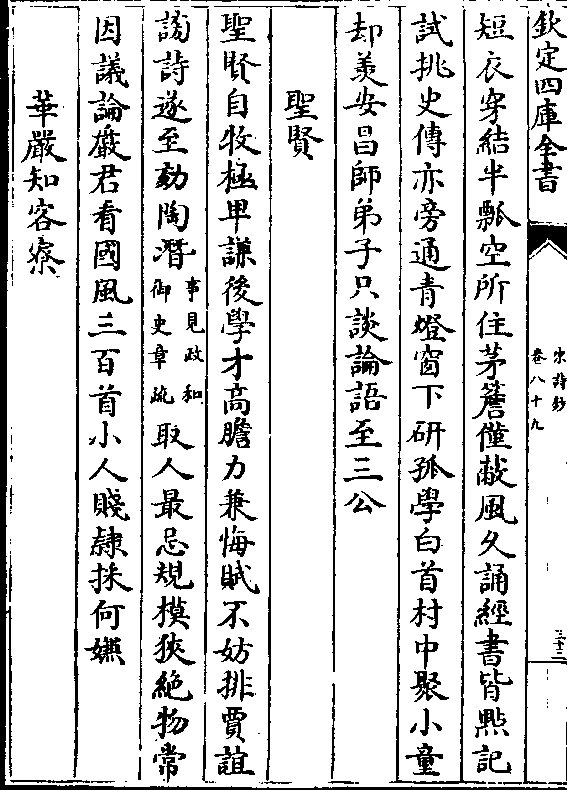 欽定四庫全書
宋詩鈔
卷八十九
三十二
短衣穿結半瓢空所住茅簷僅蔽風久誦經書皆黙記
試挑史傳亦旁通青燈窗下研孤學白首村中聚小童
却羨安昌師弟子只談論語至三公
聖賢
聖賢自牧極卑謙後學才高膽力兼悔賦不妨排賈誼
謗詩遂至劾陶潛事見政和
御史章疏取人最忌規模狹絶物常
因議論嚴君看國風三百首小人賤隷採何嫌
華嚴知客寮